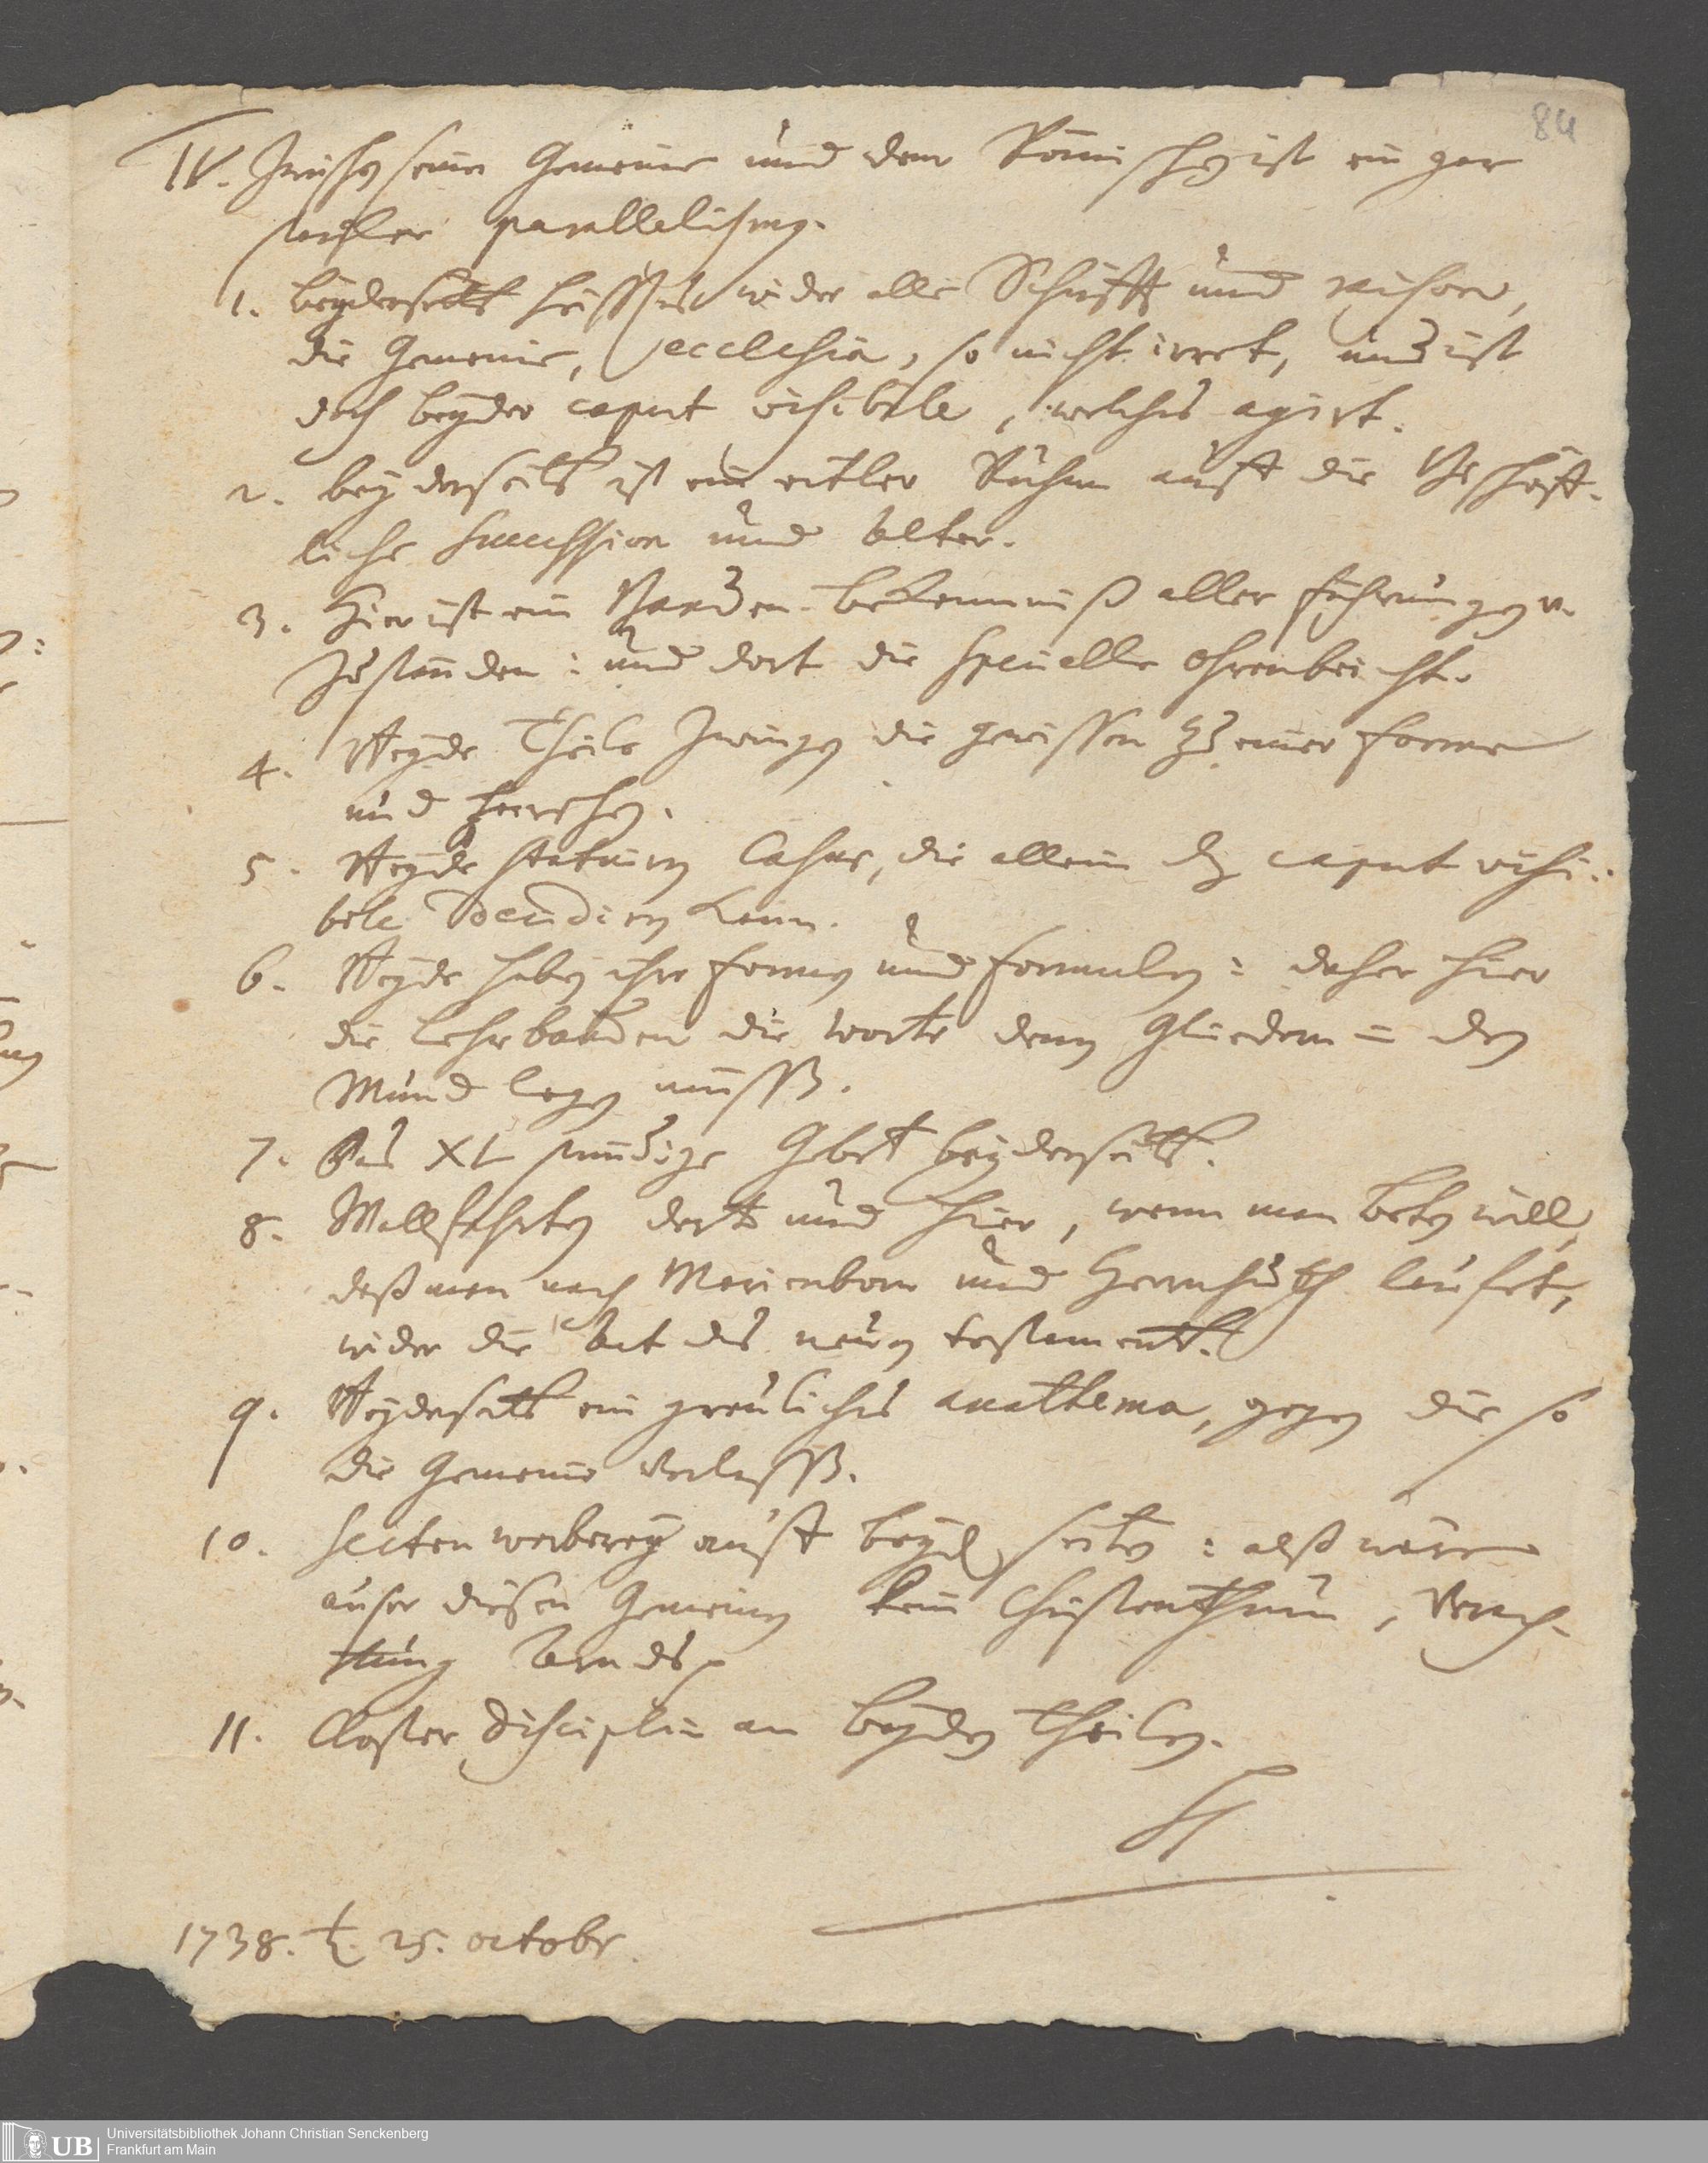 84
IV. Zwischen seiner Gemeine und dem Römischen ist ein gar
parallelismus.
1. beyderseits heisset es wider alle Schrifft und raison,
die Gemeine, ecclesia, so nicht irret, und ist
doch beyder caput visibile, welches agirt.
2. beyderseits ist ein eitler Ruhm auff die Bischöff-
liche Succession und Alter.
3. Hier ist ein Banden-bekenntniß aller führungen u.
Zuständen: und dort die specielle Ohrenbeicht.
4. Beyde Theile zwingen die gewissen zu einer forme
und herrschen.
5. Beyde statuiren Casus, die allein das caput visi-
bile decidiren kann.
6. Beyde haben ihre formen und formuln: daher hier
die Lehrbanden die worte denen Gliedern in den
Mund legen müssen.
7. Das XL stündige Gebet beyderseits.
8. Wallfahrten dort und hier, wenn man beten will,
daß man nach Marienborn und Herrnhuth laufet,
wider die Art des neuen testaments.
9. Beyderseits ein greuliches anathema, gegen die so
die Gemeine verlassen.
10. Secten werberey auff beyden seiten: alß wäre
auser diesen Gemeinen kein Christenthum, Verach-
tung
11. Closter disciplin an beyden Theilen.
1738. ♄. 25. octobr.
UB Universitätsbibliothek Johann Christian Senckenberg
Frankfurt am Main